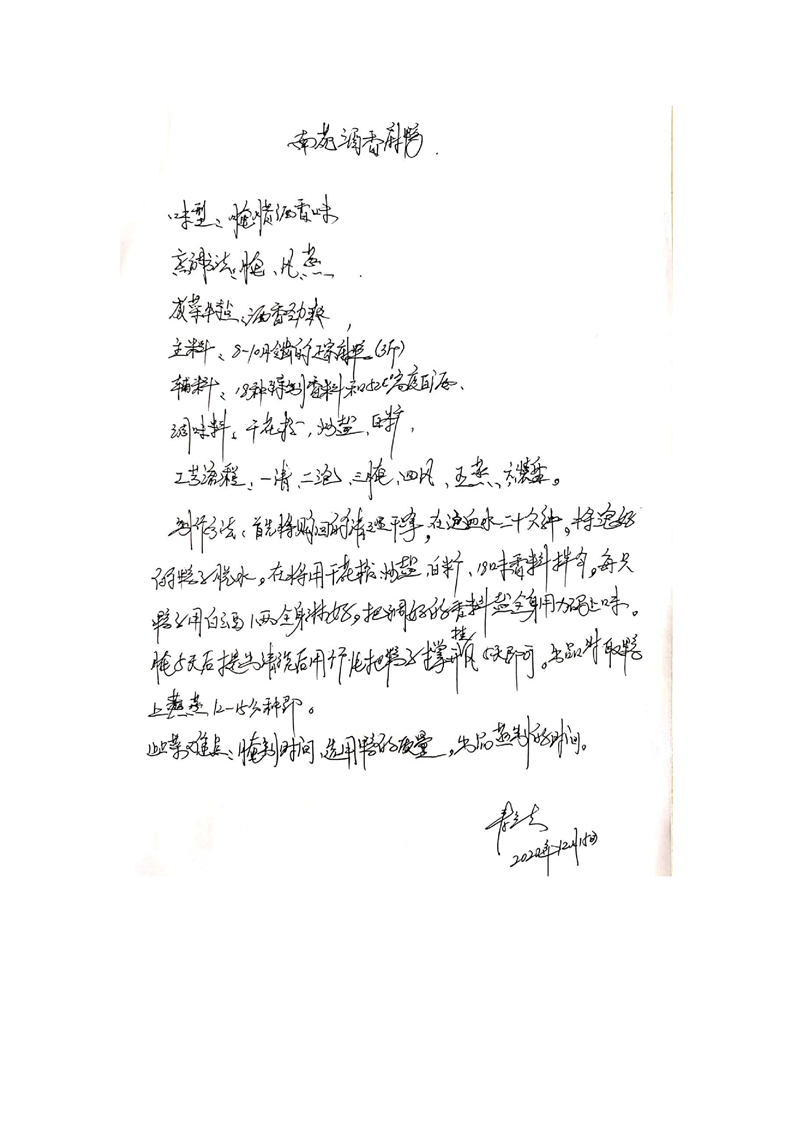 南苑酒香麻鸭.
味型：腌腊酒香味
烹调方法：腌、风、蒸.
成菜特点：酒香劲爽，
主料：8-10月龄的正宗麻鸭(3斤)
辅料：18种特制香料和52°高度白酒.
调味料：干花椒，炒盐，白糖.
工艺流程：一清、二泡、三腌、四风、五蒸、六装盘。
制作方法：首先将购回的清理干净，在泡血水二十分钟，将泡好
的鸭子脱水，在将用干花椒，炒盐，白糖、18味香料拌匀，每只
鸭子用白酒1两全身抹好，把调好的香料盐全身用力码上味。
腌5天后提出清洗后用竹片把鸭子撑开挂风5天即可。出品时取鸭
上蒸笼蒸12-15分钟即。
此菜难点：腌制时间、选用鸭的质量，出品蒸制的时间。
2022年12月15日